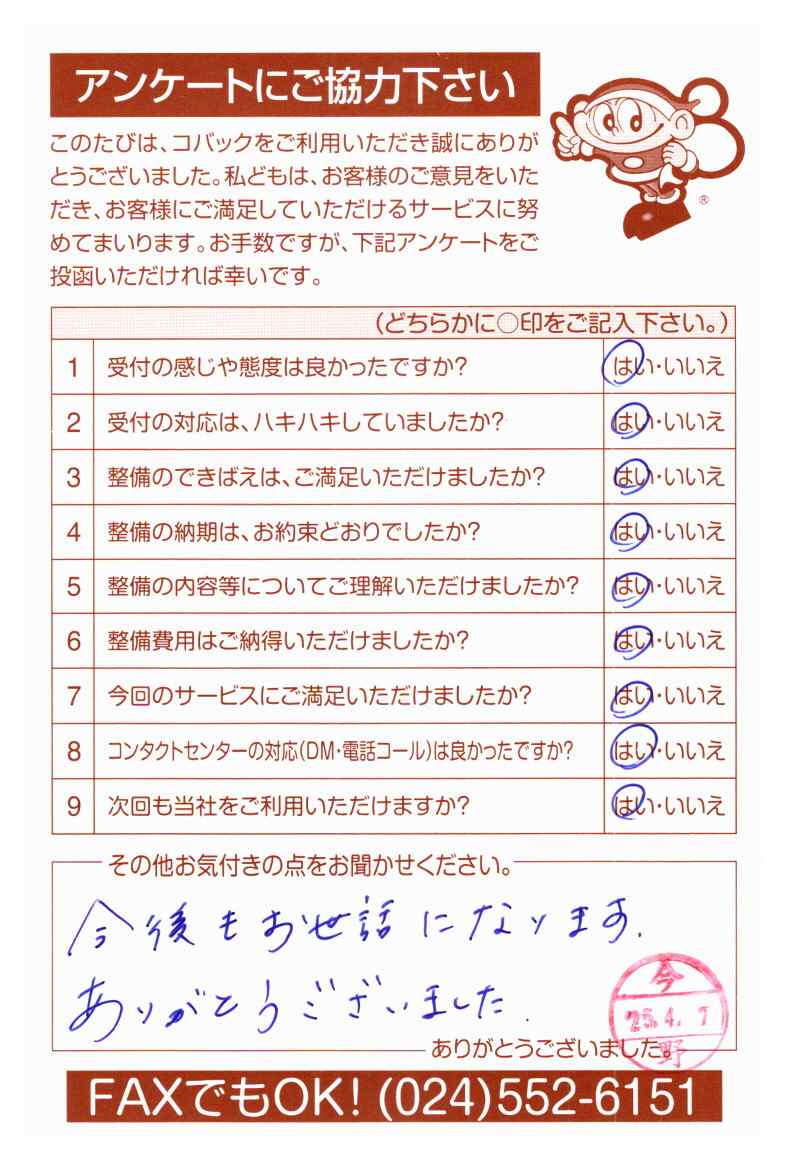 アンケートにご協力下さい
このたびは、コバックをご利用いただき誠にありが
とうございました。私どもは、お客様のご意見をいた
だき、お客様にご満足していただけるサービスに努
めてまいります。お手数ですが、下記アンケートをご
投函いただければ幸いです。
®
(どちらかに○印をご記入下さい。)
1 受付の感じや態度は良かったですか? はい・いいえ
2 受付の対応は、ハキハキしていましたか? はい・いいえ
3 整備のできばえは、ご満足いただけましたか? はい・いいえ
4 整備の納期は、お約束どおりでしたか? はい・いいえ
5 整備の内容等についてご理解いただけましたか? はい・いいえ
6 整備費用はご納得いただけましたか? はい・いいえ
7 今回のサービスにご満足いただけましたか? はい・いいえ
8 コンタクトセンターの対応(DM・電話コール)は良かったですか? はい・いいえ
9 次回も当社をご利用いただけますか? はい・いいえ
その他お気付きの点をお聞かせください。
今後もお世話になります.
ありがとうございました.
今
25.4.7
野
ありがとうございました。
FAXでもOK! (024)552-6151